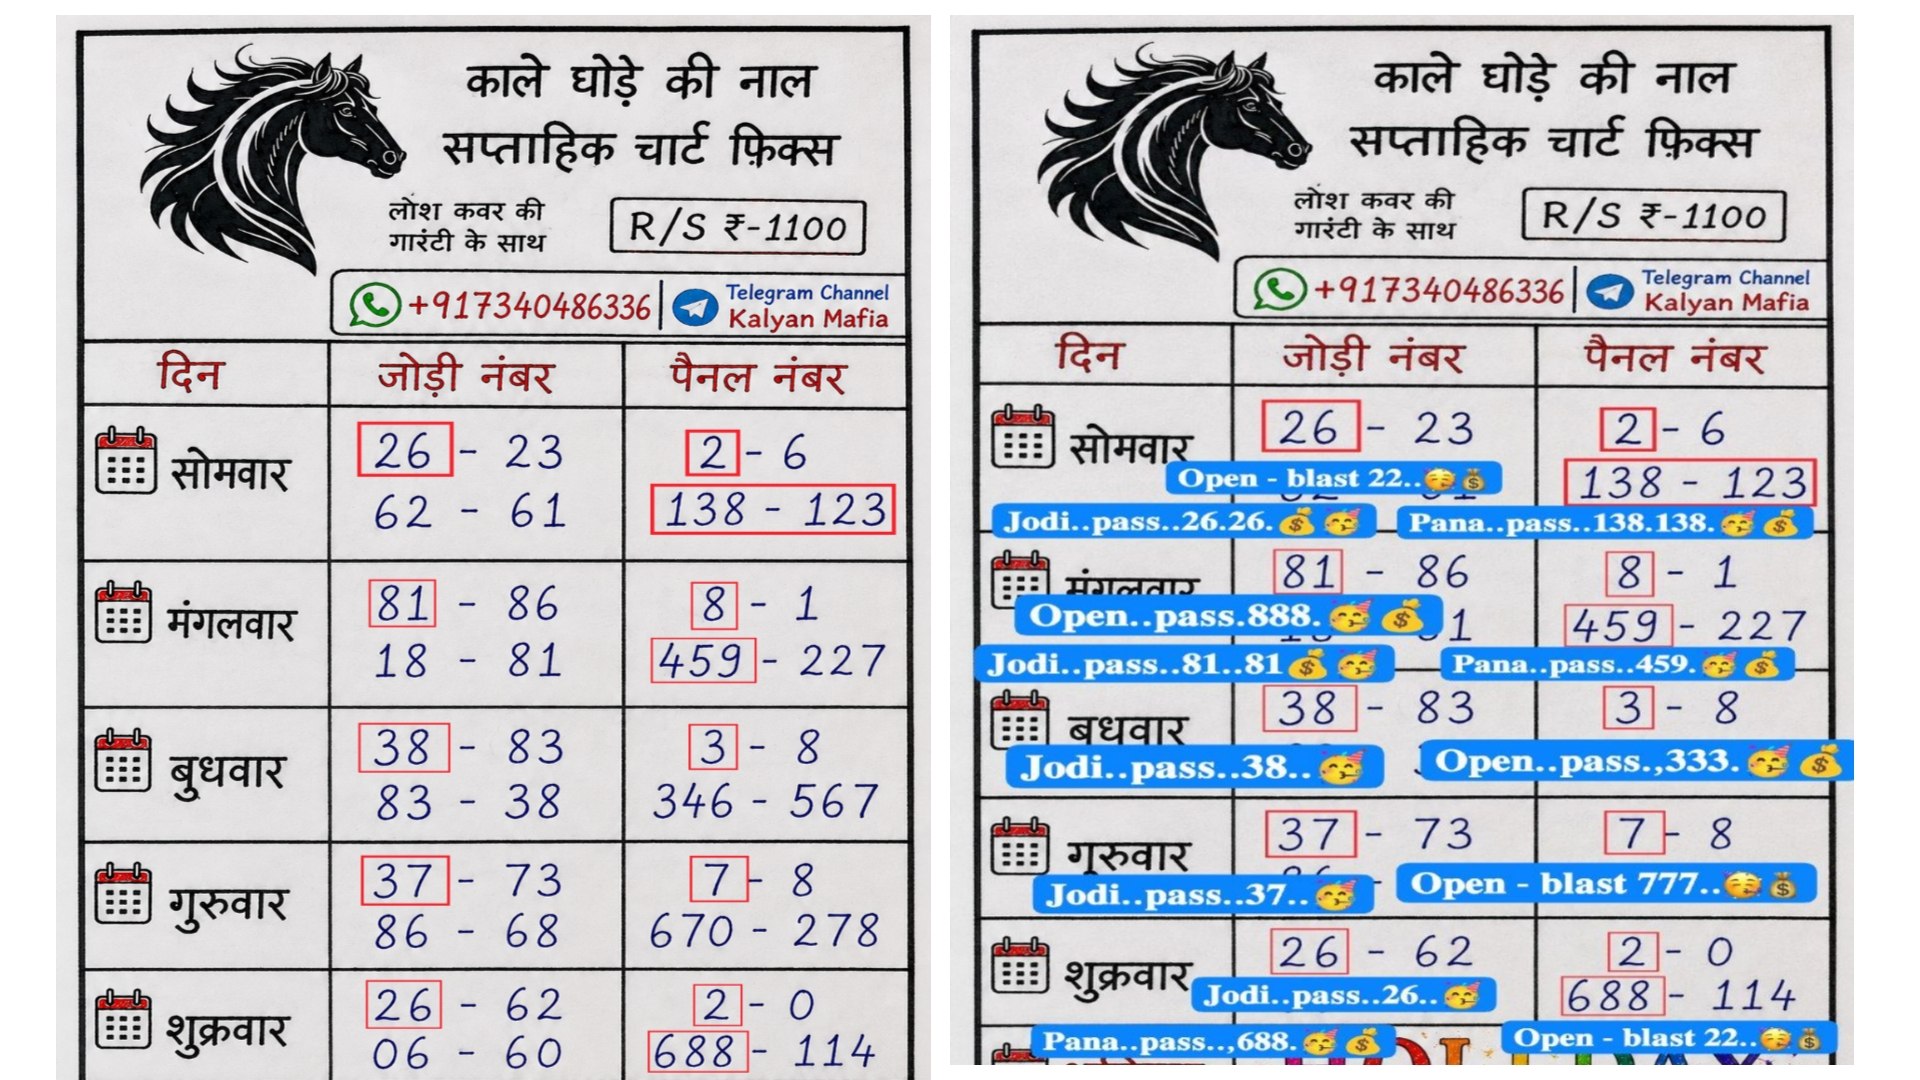 काले घोड़े की नाल
सप्ताहिक चार्ट फ़िक्स
लोश कवर की
गारंटी के साथ
R/S ₹-1100
+917340486336
Telegram Channel
Kalyan Mafia
दिन जोड़ी नंबर पैनल नंबर
सोमवार
26 - 23 2 - 6
62 - 61 138 - 123
मंगलवार
81 - 86 8 - 1
18 - 81 459 - 227
बुधवार
38 - 83 3 - 8
83 - 38 346 - 567
गुरुवार
37 - 73 7 - 8
86 - 68 670 - 278
शुक्रवार
26 - 62 2 - 0
06 - 60 688 - 114
काले घोड़े की नाल
सप्ताहिक चार्ट फ़िक्स
लोश कवर की
गारंटी के साथ
R/S ₹-1100
+917340486336
Telegram Channel
Kalyan Mafia
दिन जोड़ी नंबर पैनल नंबर
सोमवार
26 - 23 2 - 6
138 - 123
Open - blast 22..🥳💰
Jodi..pass..26.26.💰🥳
Pana..pass..138.138.🥳💰
मंगलवार
81 - 86 8 - 1
459 - 227
Open..pass.888.🥳💰
Jodi..pass..81..81💰🥳
Pana..pass..459.🥳💰
बुधवार
38 - 83 3 - 8
Jodi..pass..38..🥳
Open..pass.,333.🥳💰
गुरुवार
37 - 73 7 - 8
Jodi..pass..37..🥳
Open - blast 777..🥳💰
शुक्रवार
26 - 62 2 - 0
688 - 114
Jodi..pass..26..🥳
Pana..pass..,688.🥳💰
Open - blast 22..🥳💰